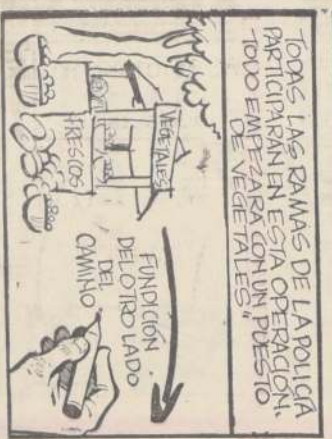 TODAS LAS RAMAS DE LA POLICIA
PARTICIPARÁN EN ESTA OPERACIÓN.
TODO EMPEZARA CON UN PUESTO
DE VEGETALES"
VEGETALES
FRESCOS
FUNDICIÓN
DEL OTRO LADO
DEL
CAMINO